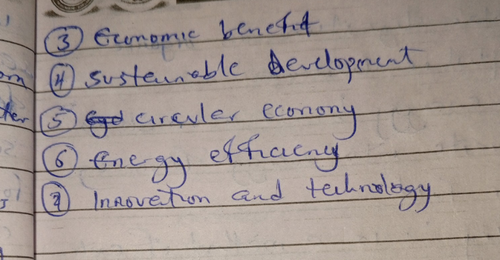 ③ Economic benefit
④ sustainable development
⑤ circuler economy
⑥ Energy efficiency
⑦ Innovation and technology